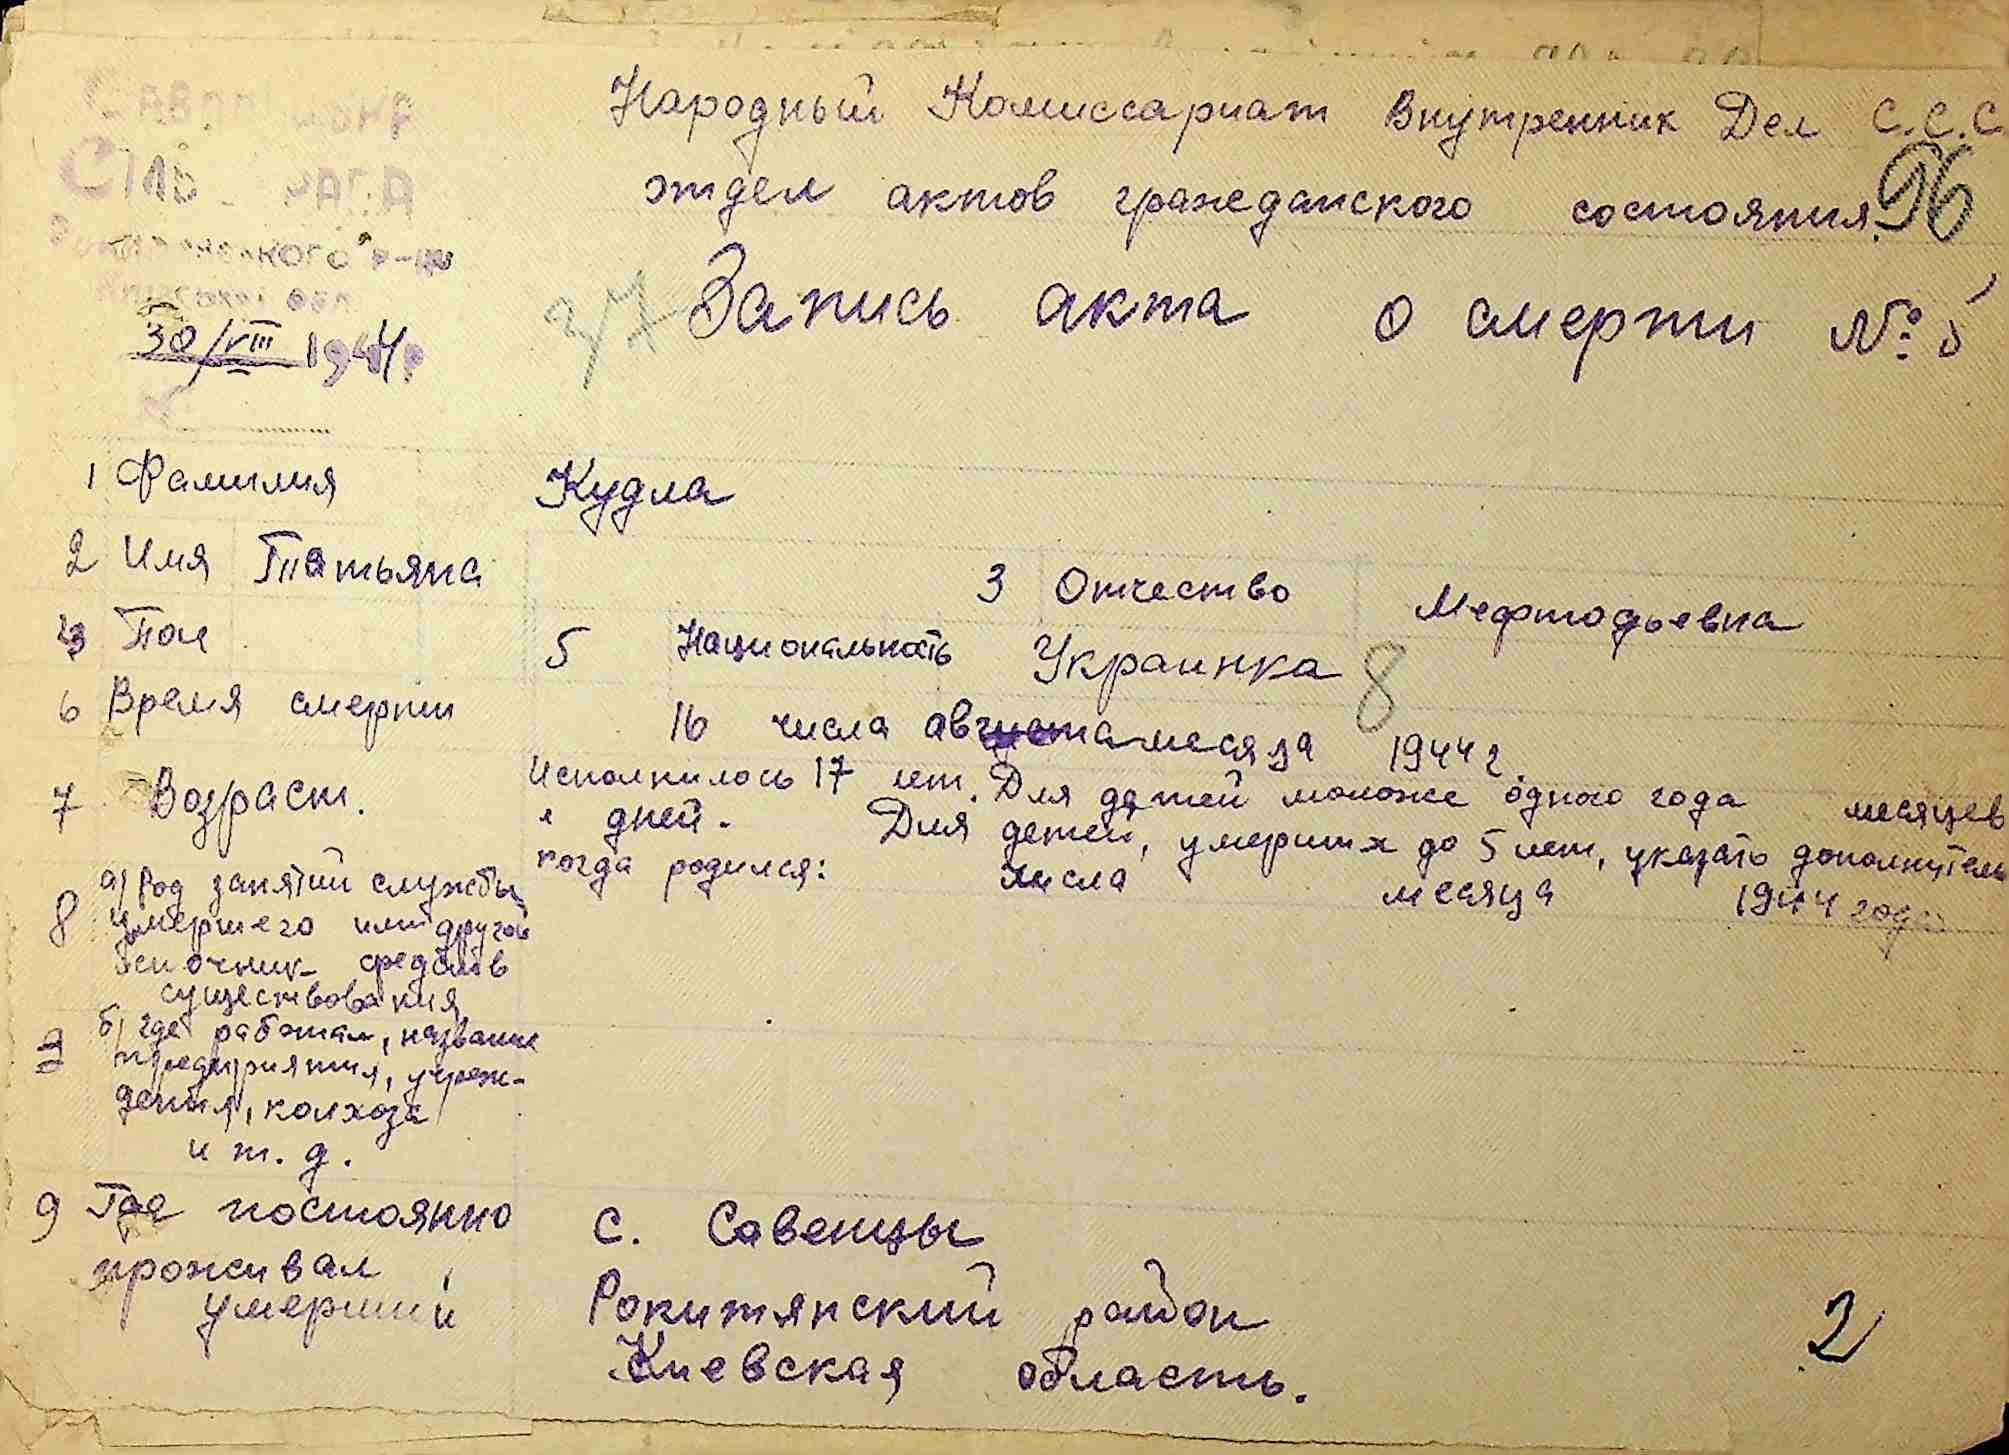 Народный Комиссариат Внутренник Дел С.С.С
отдел актов гражданского состояния.
96
37
Запись акта о смерти №: 5
30/VIII 1944р
1 Фамилия Кудла
2 Имя Татьяна 3 Отчество Мефтодьевна
Пол 5 Национальность Украинка 8
6 Время смерти 16 числа августа месяца 1944 г.
7 Возраст. Исполнилось 17 лет. Для детей моложе одного года месяцев
и дней. Для детей, умерших до 5 лет, указать дополнитель
когда родился: числа месяца 1944 года
8 а) Род занятий службы
умершего или другой
источник средств
существования
б) где работал, название
предприятия, учреж-
дения, колхоза
и т. д.
9 Где постоянно с. Савенцы
проживал Рокитянский район
умерший Киевская область.
2